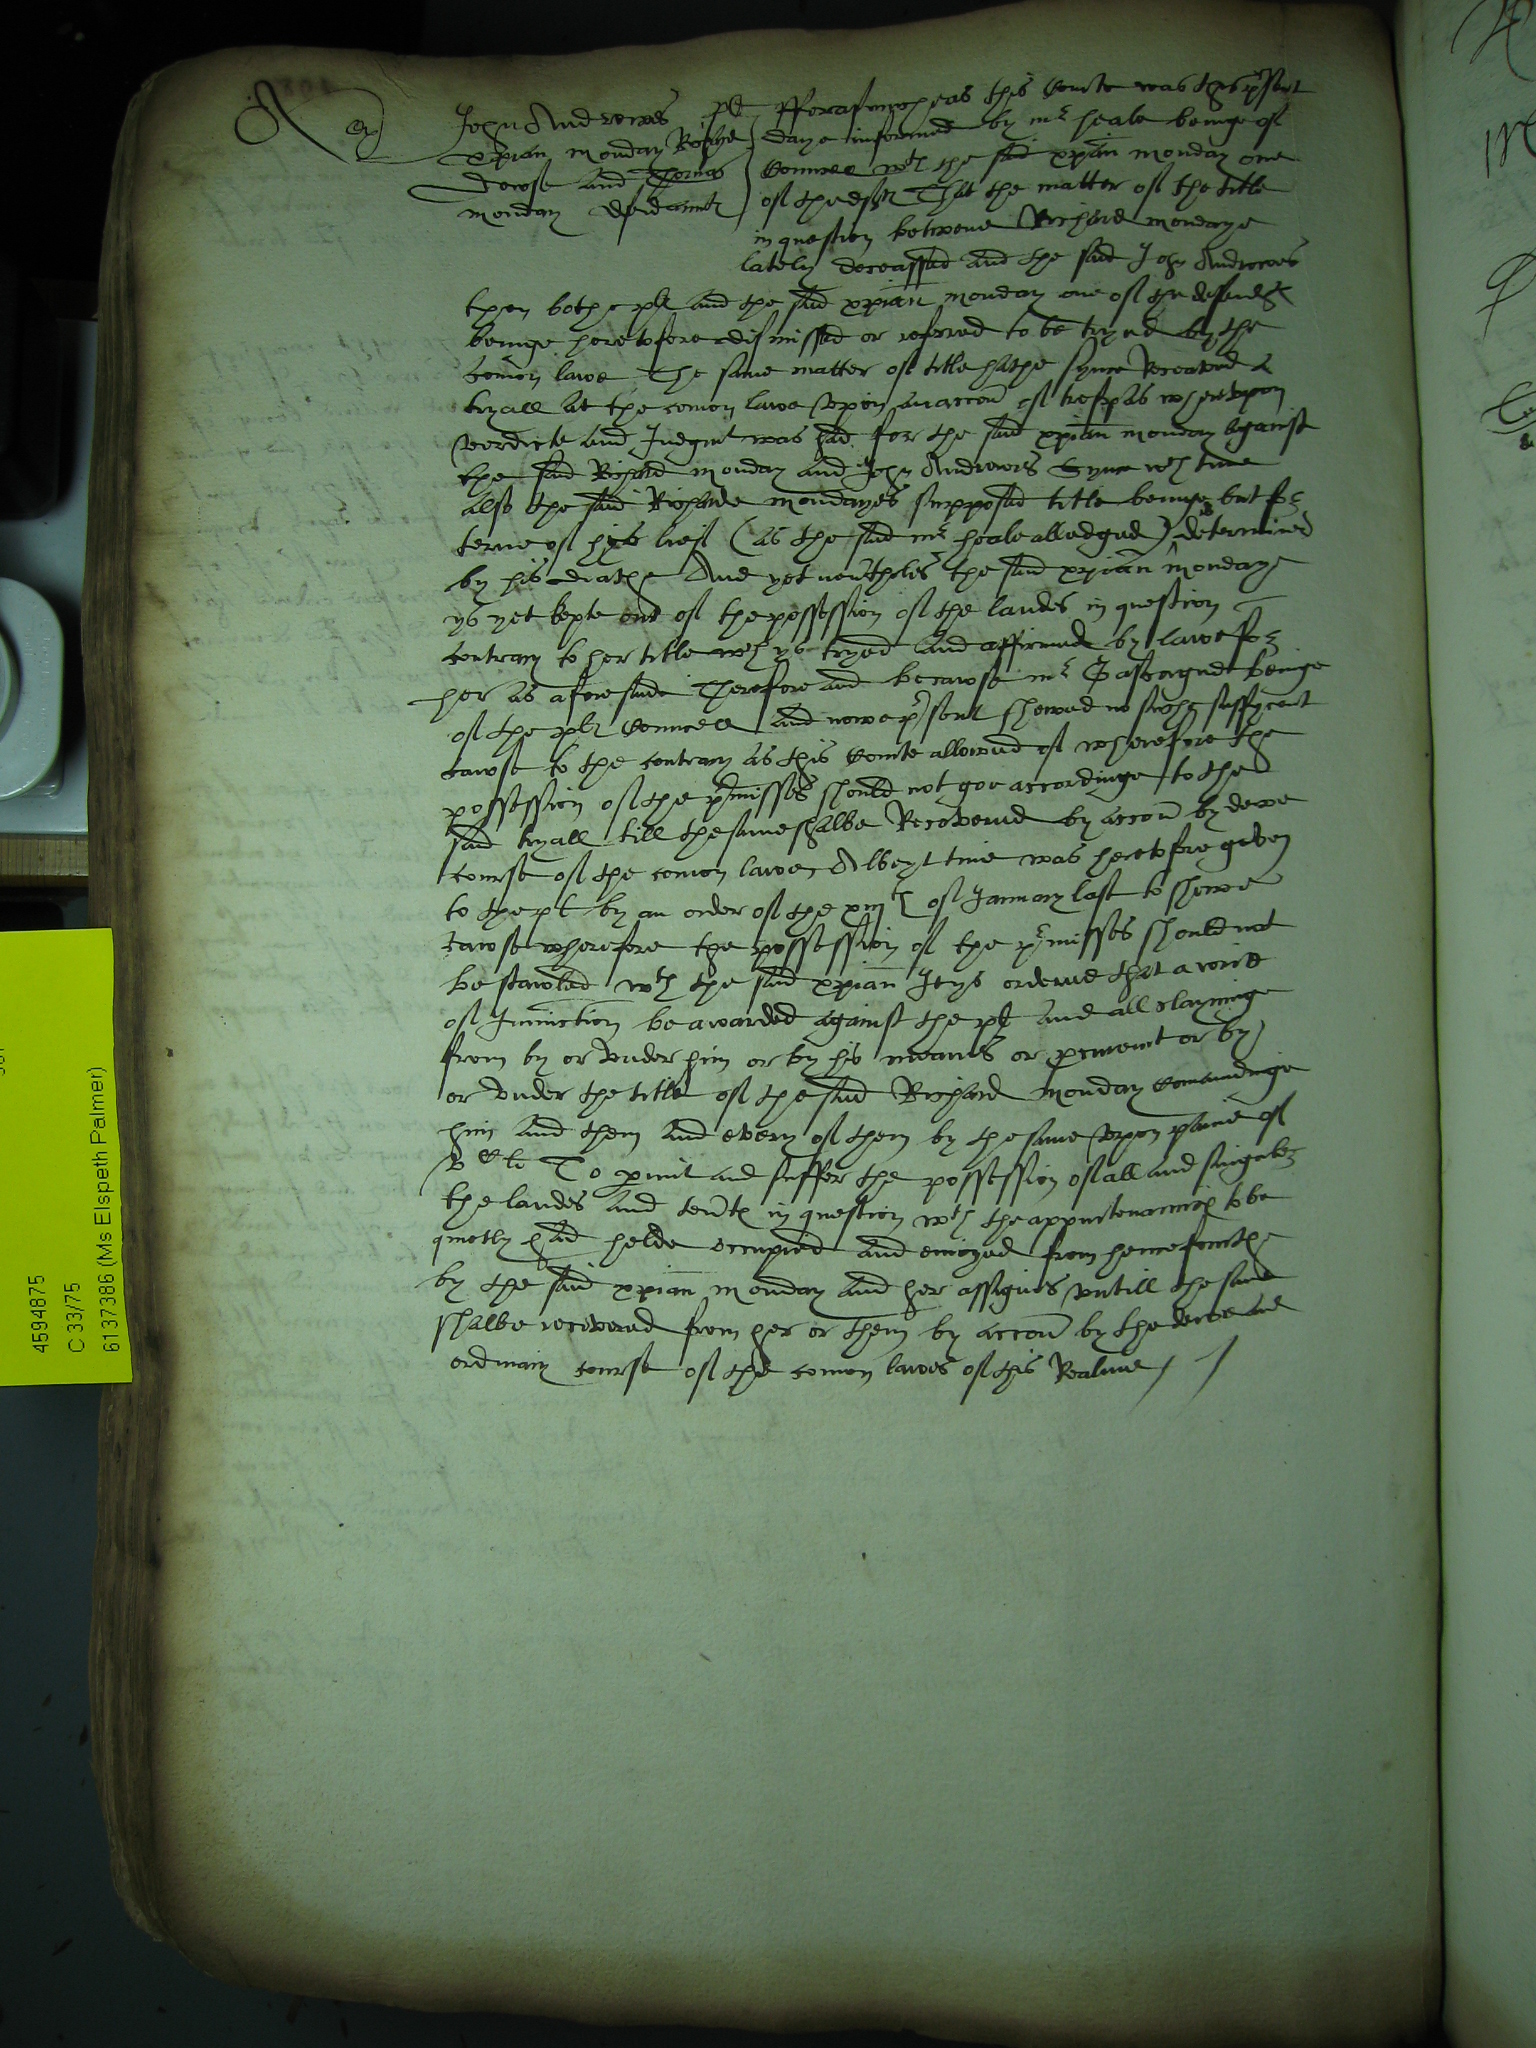 John Andrewes plt
xpian Monday Riche
dowse and Thomas
Monday defendauntes
Fforasmoche as this Courte was this p'sent
daye informed by mr heale beinge of
Councell wth the said xpian Monday one
of the deftes That the matter of the title
in question betwene Richard Mondaye
lately deceassed and the said John Andrewes
then bothe pltes and the said xpian Monday one of the defendtes
beinge heretofore dismissed or referred to be tryed by the
comon lawe The same matter of title hathe synce Receaved a
tryall at the comon lawe vpon an accon of trespas wherevpon
verdicte and Judgmt was had for the said xpian Monday against
the said Richard Monday and John Andrewes Synce wch time
also the said Richarde Mondayes supposed title beinge but for
terme of his lief (as the said mr heale alledged) is determined
by his deathe And yet nev'theles the said xpian Mondaye
ys yet kepte out of the possession of the landes in question
contrary to her title wch ys tryed and affirmed by lawe for
her as aforesaide Therefore and because mr Gascoigne beinge
of the pltes Councell and nowe p'sent shewed no suche suffycent
cawse to the contrary as this Courte allowed of wherefore the
possession of the p'misses should not goe accordinge to the
said tryall till the same shalbe Recovered by accon by dewe
course of the comon lawe, Albeyt time was heretofore given
to the plt by an order of the xiijth of January last to shewe
cawse wherefore the possession of the p'misses should not
be stablished wth the said xpian It ys ordered that a writt
of Iniunction be awarded against the plt and all clayminge
from by or vnder him or by his meanes or procuremt or by
or vnder the title of the said Richard Monday Comaundinge
him and them and every of them by the same vpon paine of
vc li To p'mit and suffer the possession of all and singuler
the landes and tentes in question wth the appurtenaunces to be
quietly had helde occupied and enioyed from hencefourthe
by the said xpian Monday and her assignes vntill the same
shalbe recovered from her or them by accon by the dewe and
ordinary course of the comon lawes of this Realme //
4594875
C 33/75
6137386 (Ms Elspeth Palmer)